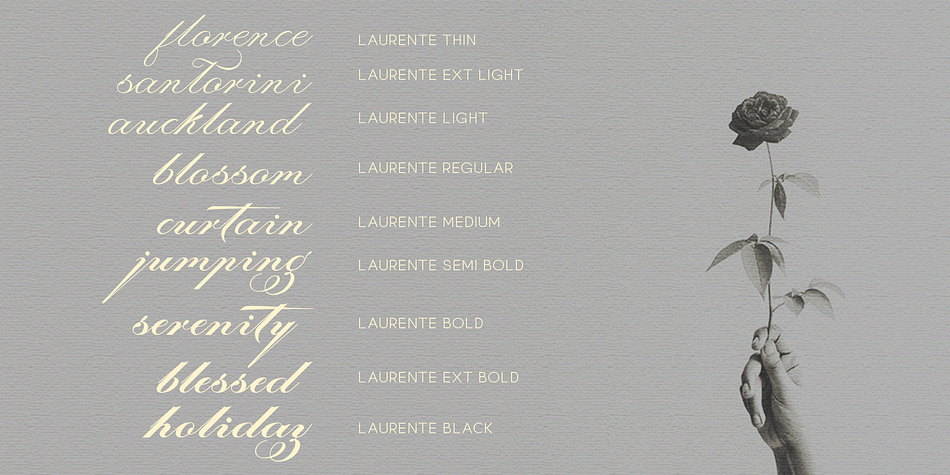 florence LAURENTE THIN
santorini LAURENTE EXT LIGHT
auckland LAURENTE LIGHT
blossom LAURENTE REGULAR
curtain LAURENTE MEDIUM
jumping LAURENTE SEMI BOLD
serenity LAURENTE BOLD
blessed LAURENTE EXT BOLD
holiday LAURENTE BLACK